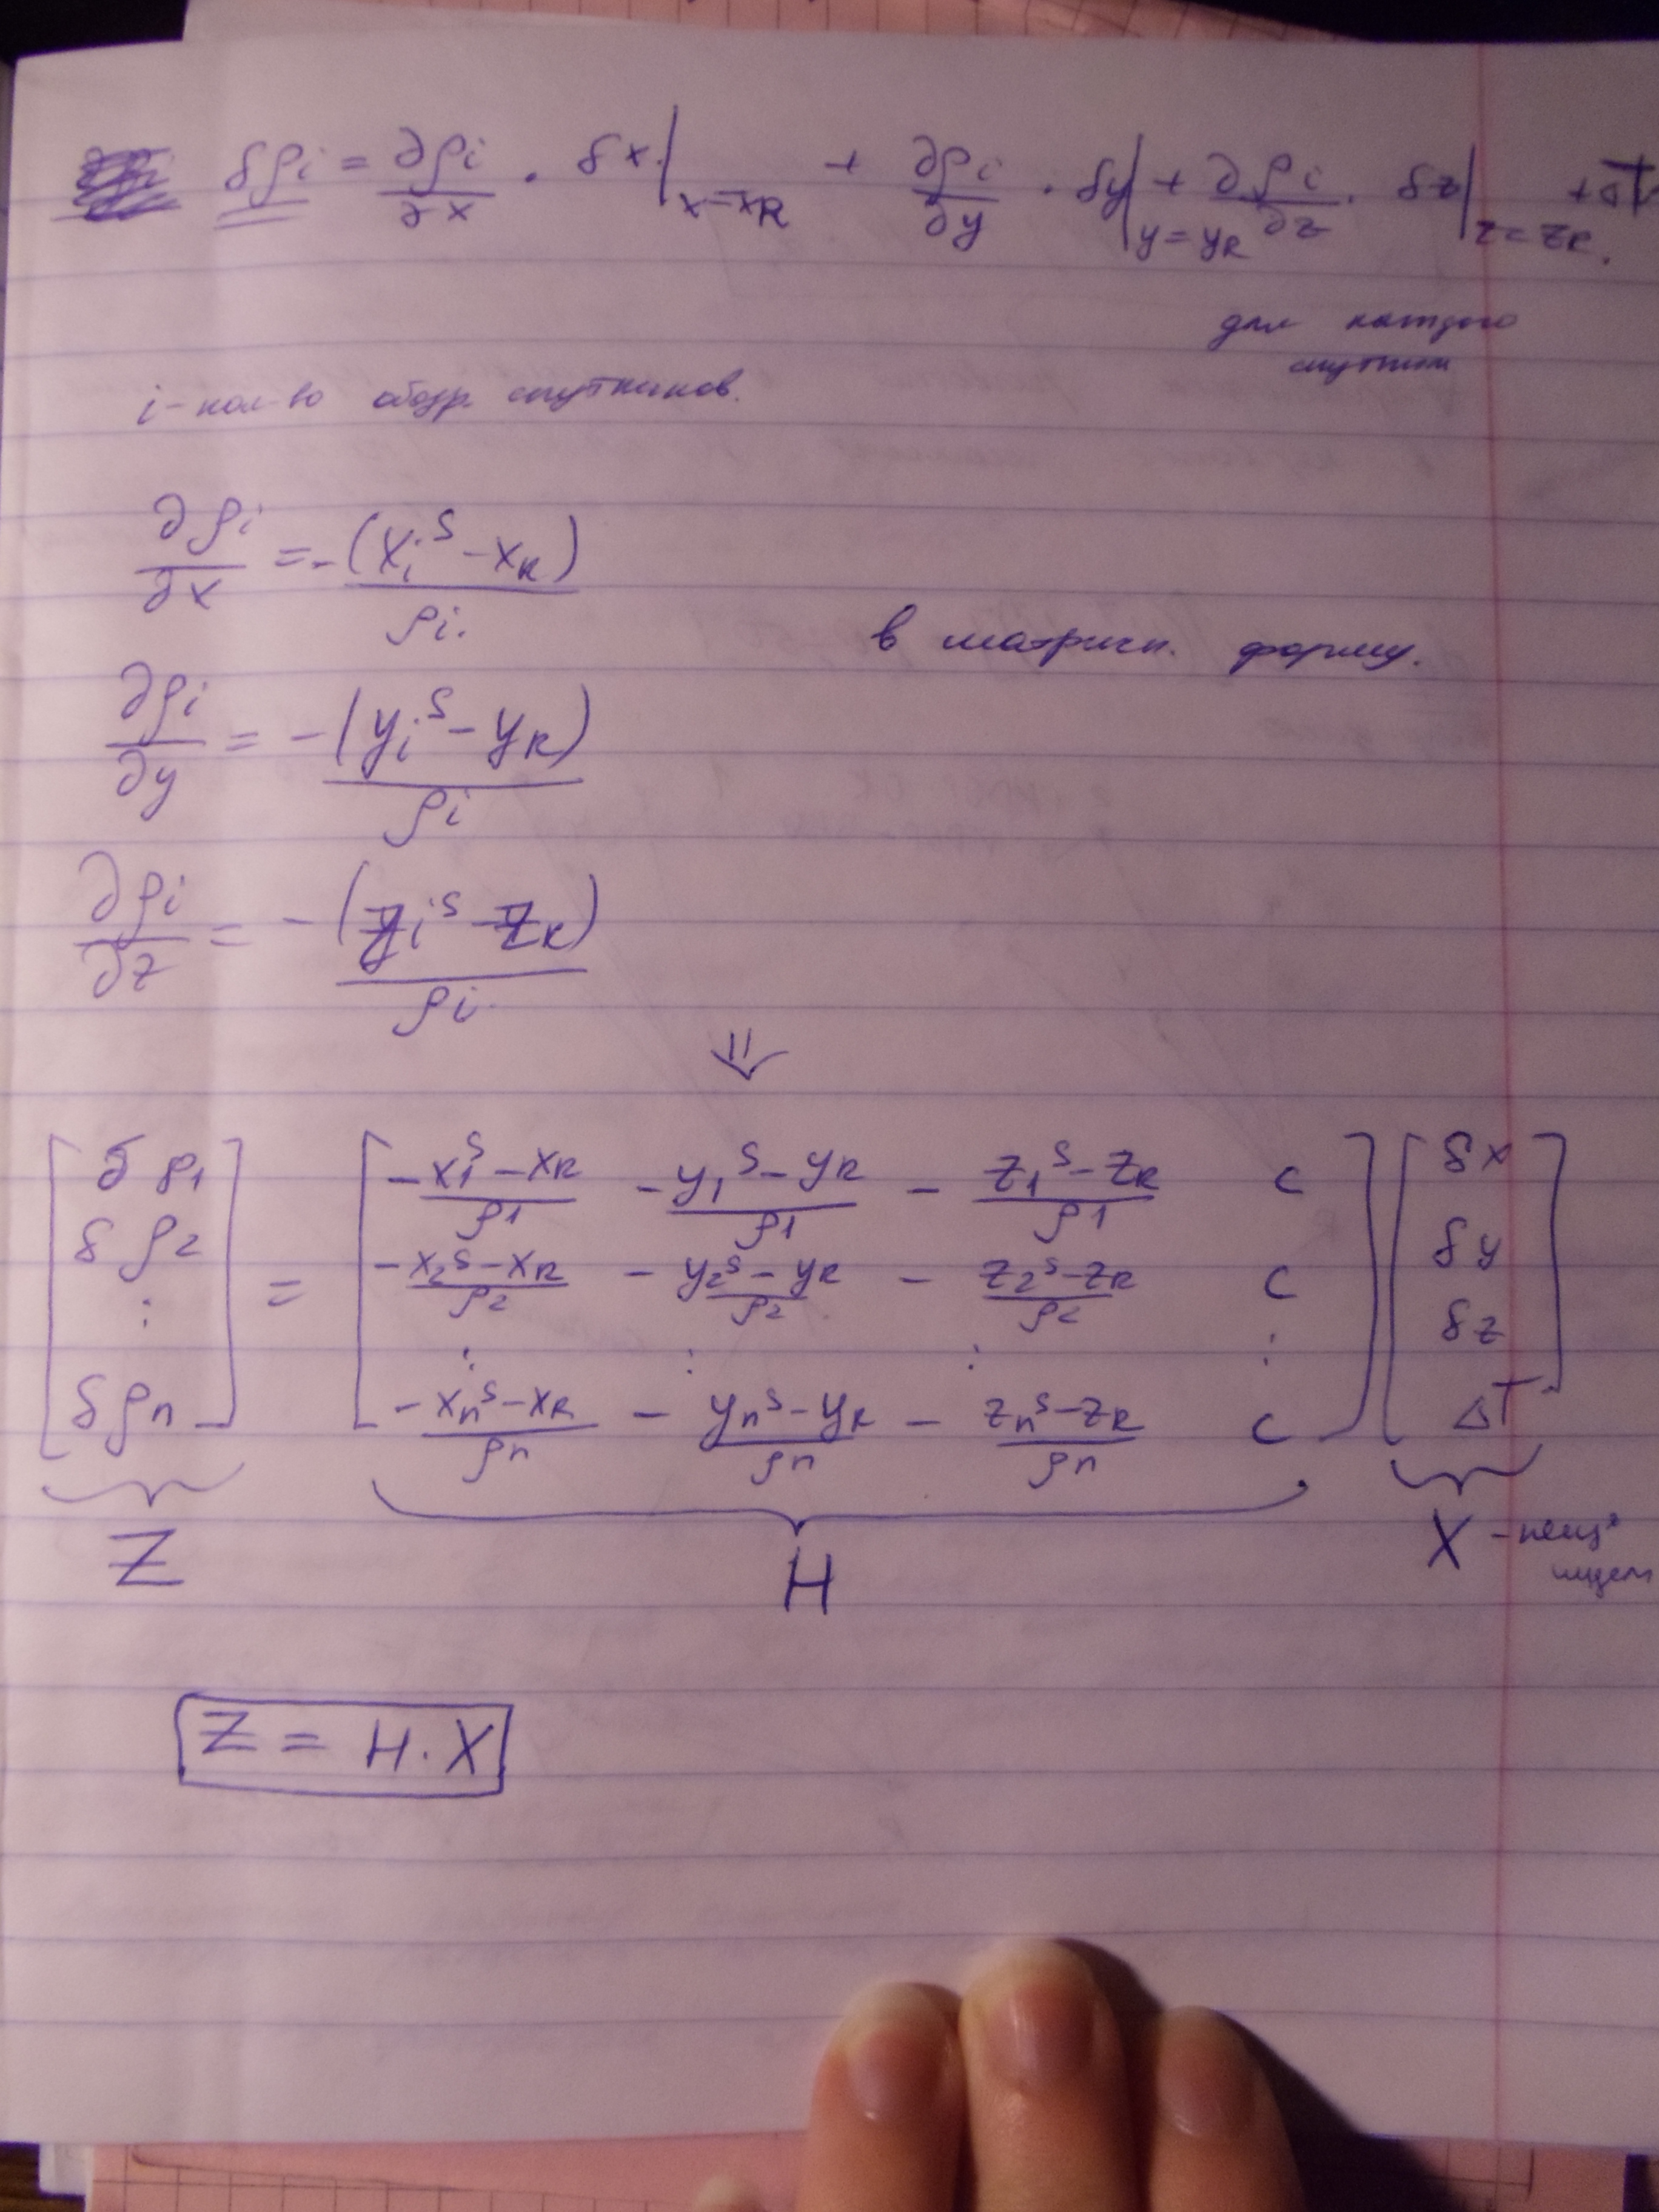 δρi = ∂ρi/∂x · δx|x=xR + ∂ρi/∂y · δy|y=yR + ∂ρi/∂z · δz|z=zR + ΔT
для каждого
i - кол-во обозр. спутников.
∂ρi/∂x = -(xi^s - xR)/ρi.
в матричн. форму.
∂ρi/∂y = -(yi^s - yR)/ρi
∂ρi/∂z = -(zi^s - zR)/ρi.
⇓
[δρ1 δρ2 ⋮ δρn] = [-(x1^s - xR)/ρ1 -(y1^s - yR)/ρ1 -(z1^s - zR)/ρ1 c; -(x2^s - xR)/ρ2 -(y2^s - yR)/ρ2 -(z2^s - zR)/ρ2 c; ⋮ ⋮ ⋮ ⋮; -(xn^s - xR)/ρn -(yn^s - yR)/ρn -(zn^s - zR)/ρn c] [δx δy δz ΔT]
Z H X -
ищем
Z = H · X